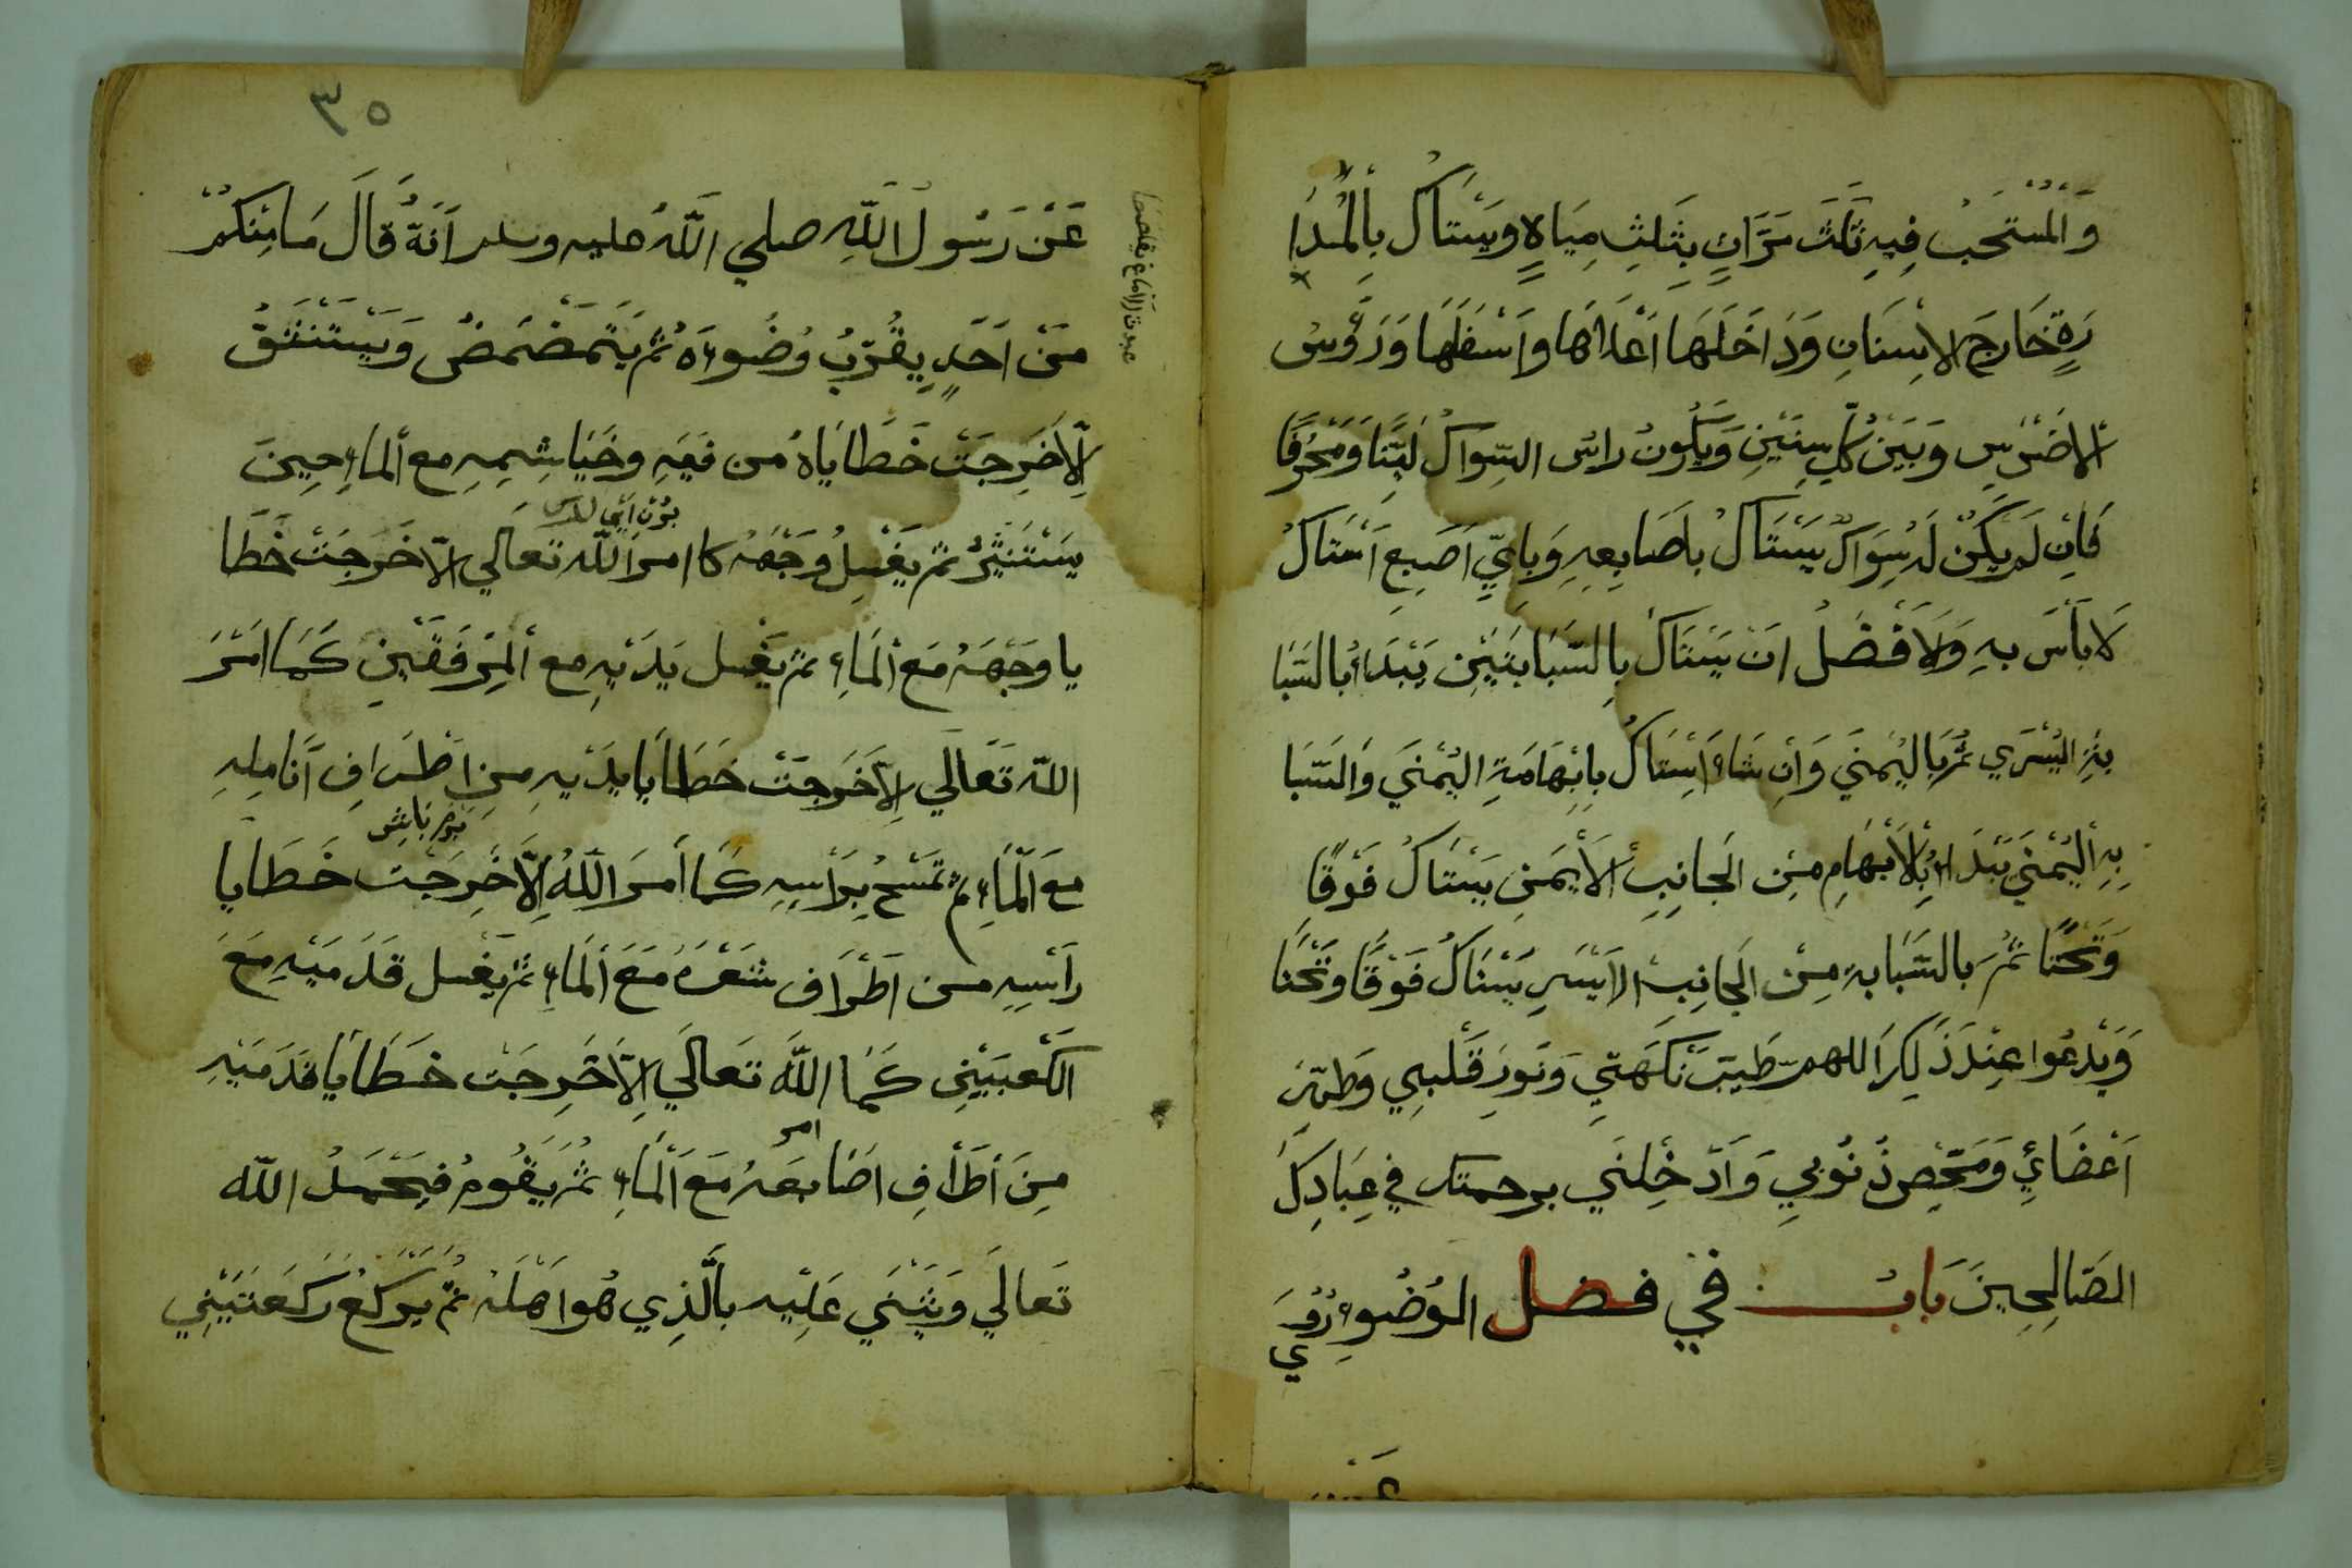 وَالْمُسْتَحَبُ فِيهِ ثَلَثَ مَرَّاتٍ بِثَلِثِ مِيَاهٍ وَيَسْتَاكُ بِالْمُدَا
رَةٍ خَارِجَ الاسْنَانِ وَدَاخَلَهَا اَعْلَاهَا وَاَسْفَلَهَا وَرَؤُسُ
الاضْرَسِ وَبَيْنَ كُلِّ سِنَّيْنِ وَيَكُونُ رَاسُ السِّوَاكُ لَيِّنًا وَمُحَرَّفًا
فَاِنْ لَمْ يَكُنْ لَهُ سِوَاكٌ يَسْتَاكُ بِاَصَابِعِهِ وَبِاَيِّ اَصَبِعِ اَسْتَاكُ
لَا بَأْسَ بِهِ وَلَاَفْضَلُ اَنْ يَسْتَاكَ بِالسَّبَابَتَيْنِ يَبْدَاءُ بِالسَّبَا
بَتِهِ الْيُسْرَي ثُمَّ بِالْيُمْنَي وَاِنْ شَاءَ اَسْتَاكُ بِاِبْهَامَةِ الْيُمْنَي وَالسَّبَا
بِهِ الْيُمْنَي يَبْدَاءُ بِالْاَبْهَامِ مِنَ الْجَانِبِ الْاَيْمَنِ يَسْتَاكُ فَوْقًا
وَتَحْتًا ثُمَّ بِالسَّبَابَهِ مِنَ الْجَانِبِ الْاَيْسَرِ يَسْتَاكُ فَوْقًا وَتَحْتًا
وَيَدْعُوا عِنْدَ ذَلِكَ اللهم طَيِّبْ نَكْهَتِي وَنَوِرْ قَلْبِي وَطَهِّرْ
اَعْضَائِي وَمَحِّصْ ذُنُوبِي وَاَدْخِلْنِي برحمتك في عِبَادِكَ
الصَّالِحِينَ بَابُ في فضل الوُضُوءِ رُوِيَ
عَنْ
٣٥
عَنْ رَسُولِ اللَّهِ صلي اللَّهُ عليه وسلم اَنَّهُ قَالَ مَا مِنْكُمْ
مِنْ اَحَدٍ يُقَرِّبُ وُضُوءَهُ ثُمَّ يَتَمَضْمَضُ وَيَسْتَنْشَقُ
اِلَّا خَرِجَتْ خَطَايَاهُ مِن فَيَهِ وخَيَاشِيمِهِ مع الْمَاءِ حِينَ
يَسْتَنْثِرُ ثم يَغْسِلُ وَجْهَهُ كما امر اللّه تعَالي اِلّا خَرَجَتْ خَطَا
يا وجْهَهُ مَعَ الْمَاءِ ثمّ يَغْسل يَدَيْهِ مع الْمِرْفَقَيْنِ كَمَا اَمَرَ
اللّه تَعَالَي اِلاّ خَرَجَتْ خَطَايَا يدَيْهِ مِنِ اطْرَافِ اَنَامِلِهِ
مَعَ الْمَاءِ ثمّ تَمْسَحُ بِرَأسِهِ كَمَا أمَرَ اللّهُ اِلَّا خَرِجَت خَطَايا
رَأسِهِ من اَطْرَاف شَعْرَهُ مَعَ الْمَاءِ ثمّ يَغْسل قَدَمَيْهِ مَعَ
الكَعْبَيْنِ كَمَا امر اللَّهُ تَعَالَي اِلّاَ خَرِجَتْ خَطَايَا قَدَمَيْهِ
مِنَ اَطْرَافِ اصَابعَهُ مَعَ الْمَاءِ ثُمَّ يَقُومُ فيَحْمَدُ اللّه
تَعَالَي وَيَثْنَي عَلَيْه بِالَّذِي هُوا اَهْلَهُ ثُمَّ يَرْكَعُ رَكَعَتَيْنِي